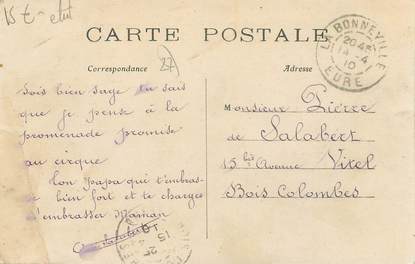 15 €
CARTE POSTALE
Correspondance
27
Adresse
LA BONNEVILLE
20 45
14 - 4
10
EURE
Sois bien sage tu sais
que je pense à la
promenade promise
au cirque
Ton Papa qui t'embrasse
bien fort et te charge
d'embrasser Maman
Monsieur Pierre
de Salabert
15 bis Avenue
Bois Colombes
15 - 4
10